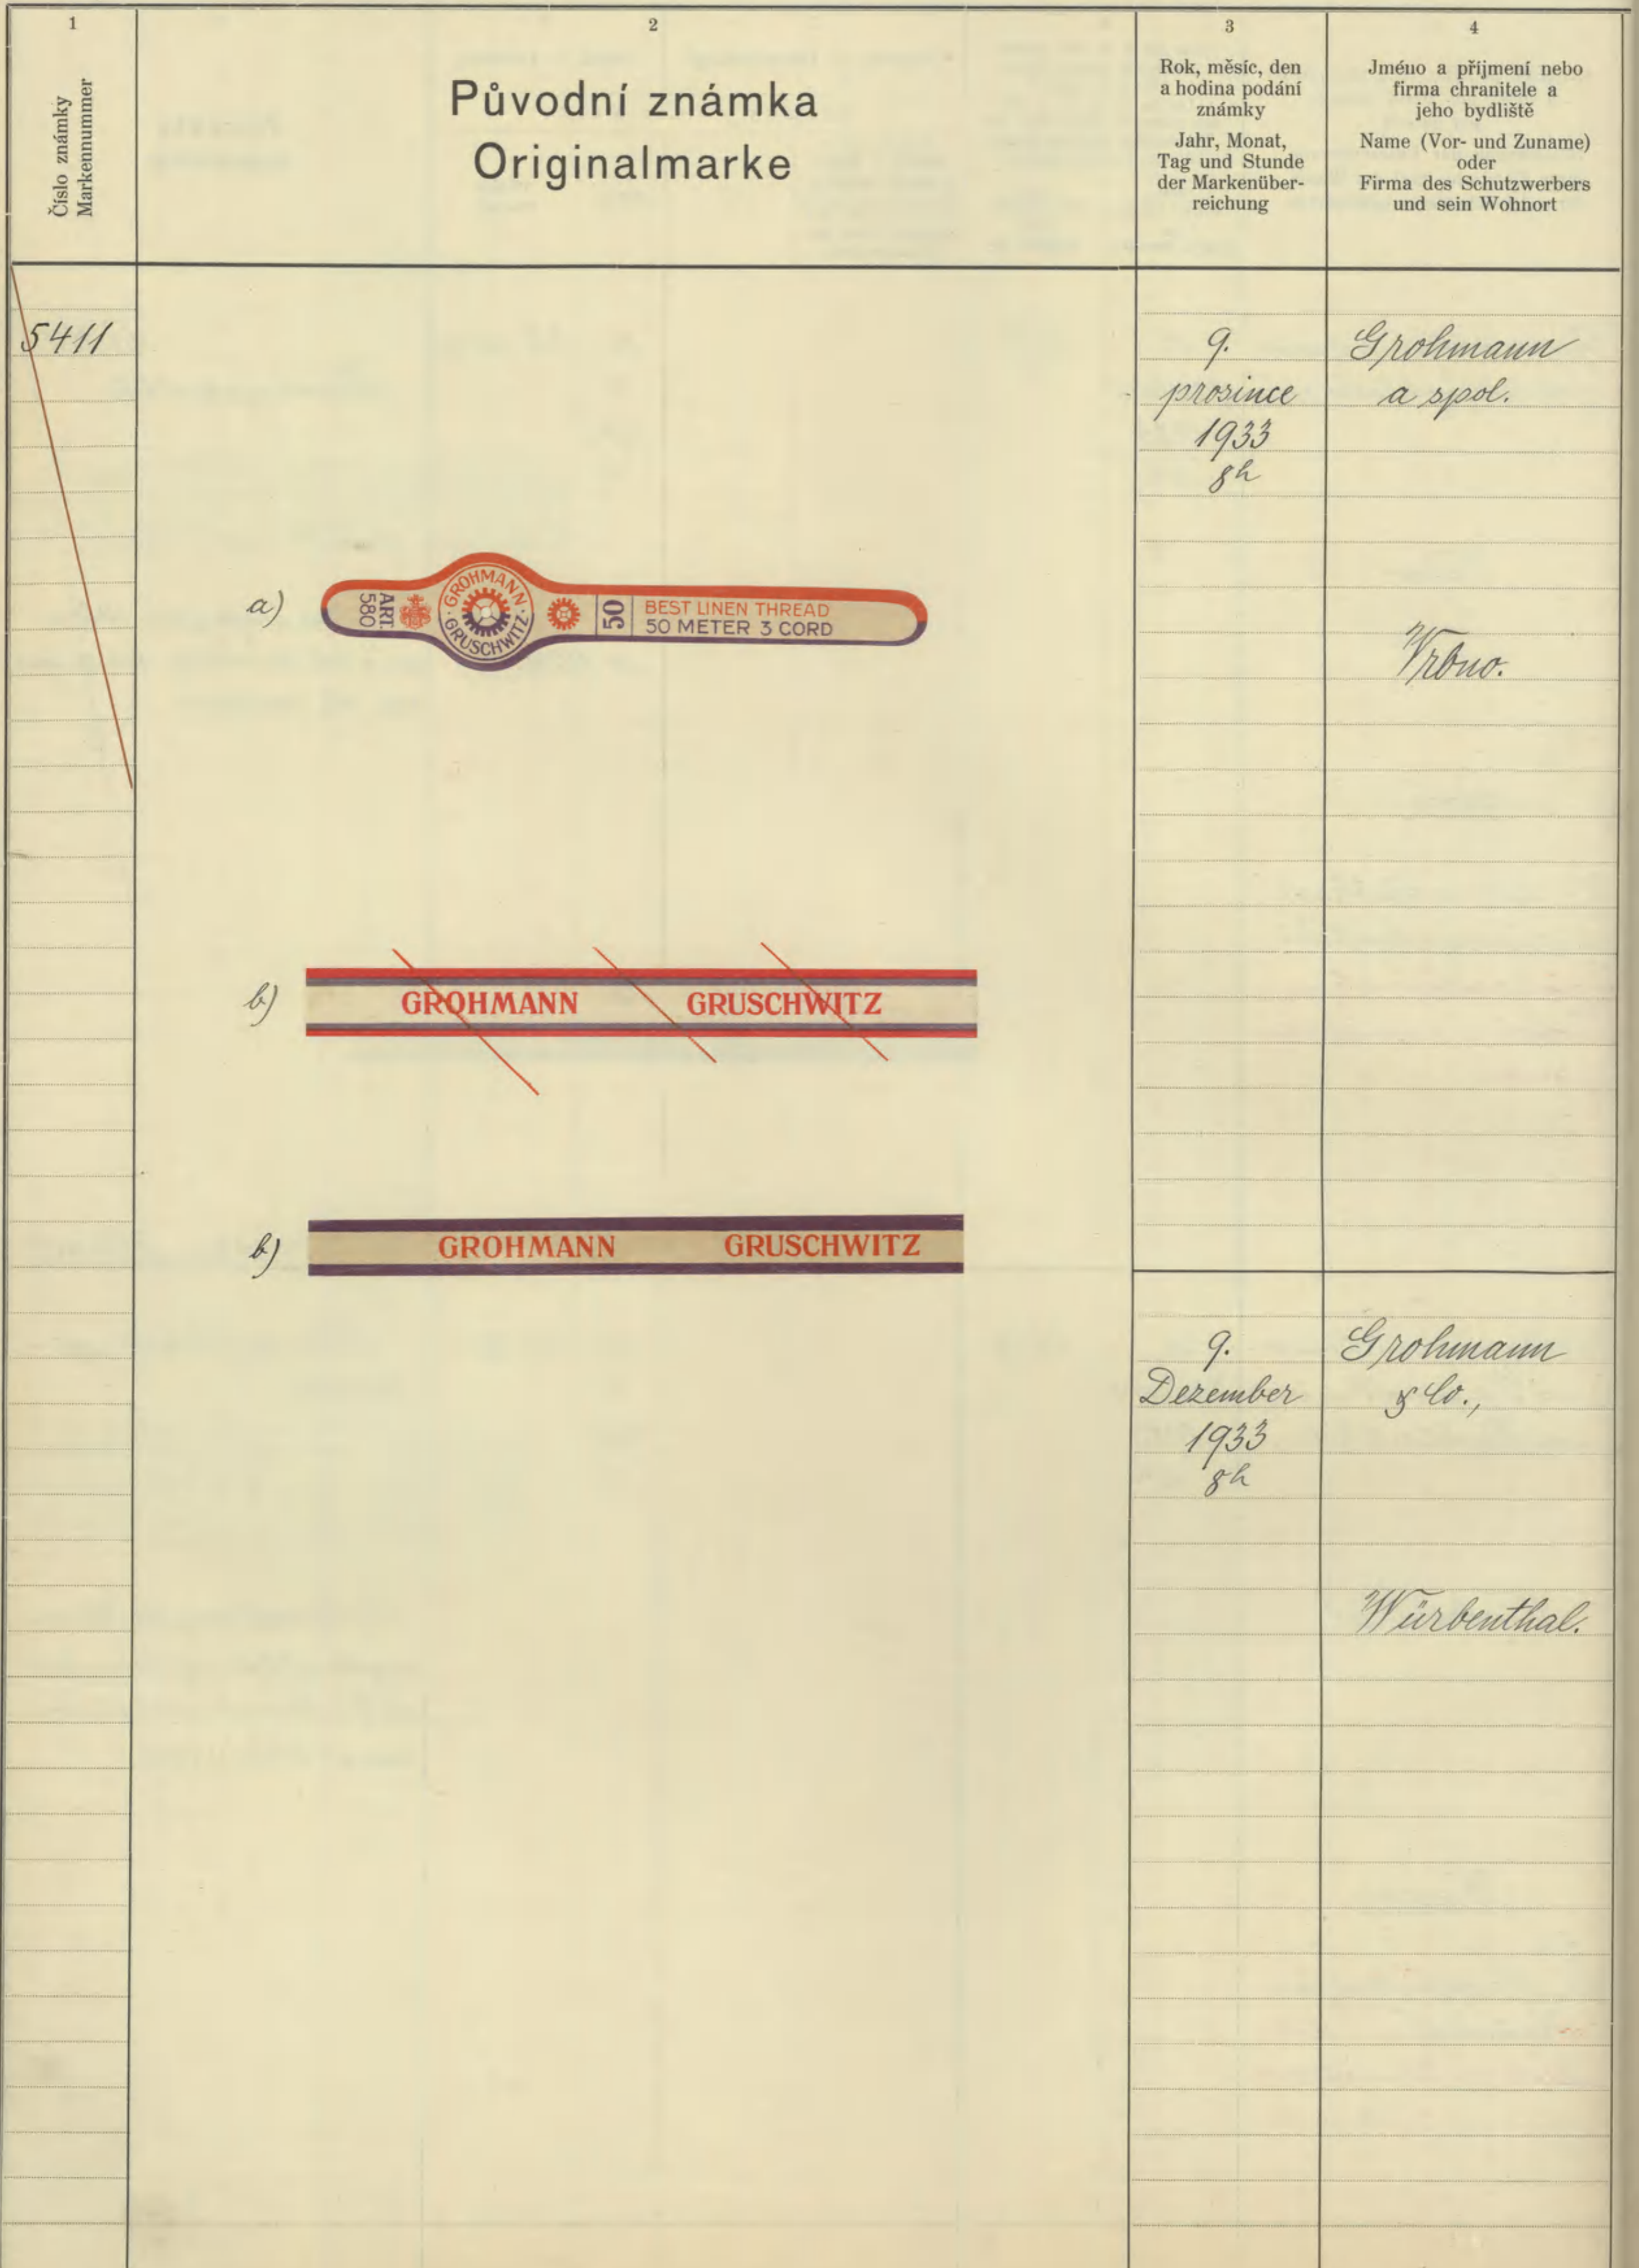 1
Číslo známky
Markennummer
2
Původní známka
Originalmarke
3
Rok, měsíc, den
a hodina podání
známky
Jahr, Monat,
Tag und Stunde
der Markenüber-
reichung
4
Jméno a příjmení nebo
firma chranitele a
jeho bydliště
Name (Vor- und Zuname)
oder
Firma des Schutzwerbers
und sein Wohnort
5411
9.
prosince
1933
8h
Grohmann
a spol.
Vrbno.
a)
ART.
580
GROHMANN
GRUSCHWITZ
50
BEST LINEN THREAD
50 METER 3 CORD
b)
GROHMANN GRUSCHWITZ
b)
GROHMANN GRUSCHWITZ
9.
Dezember
1933
8h
Grohmann
& Co.,
Würbenthal.